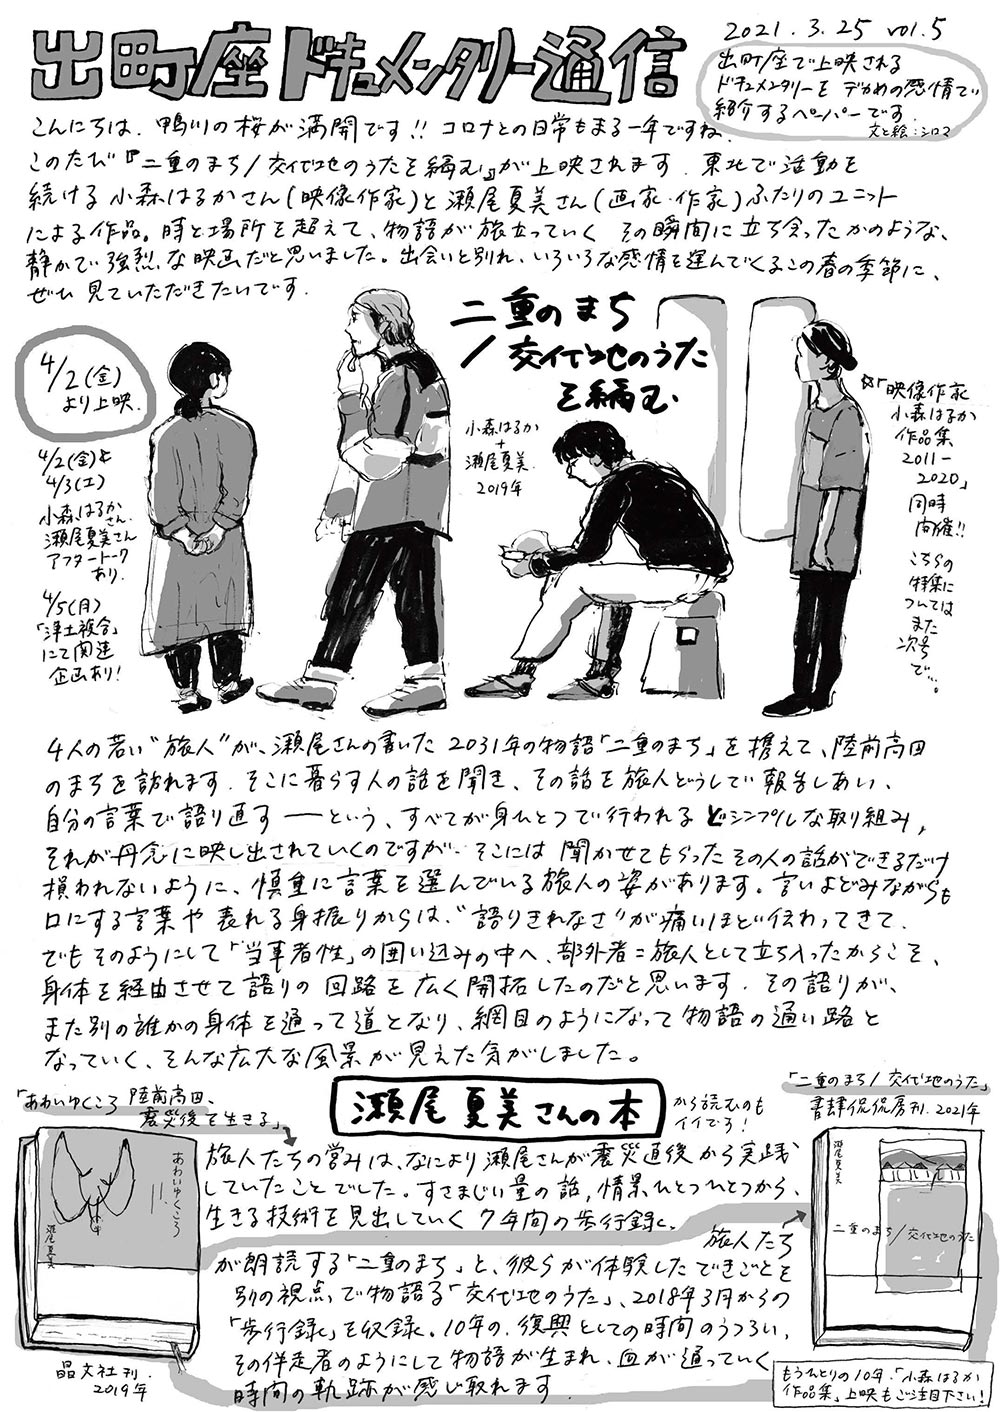 出町座ドキュメンタリー通信
2021.3.25 vol.5
出町座で上映される
ドキュメンタリーをデカめの感情で
紹介するペーパーです.
文と絵:シロマ
こんにちは. 鴨川の桜が満開です!! コロナとの日常もまる一年ですね.
このたび『二重のまち/交代地のうたを編む』が上映されます. 東北で活動を
続ける小森はるかさん(映像作家)と瀬尾夏美さん(画家・作家)ふたりのユニット
による作品。時と場所を超えて、物語が旅立っていく その瞬間に立ち会ったかのような、
静かで強烈な映画だと思いました。出会いと別れ、いろいろな感情を運んでくるこの春の季節に、
ぜひ見ていただきたいです.
二重のまち
/交代地のうた
を編む
小森はるか
+
瀬尾夏美.
2019年
4/2(金)
より上映.
4/2(金)と
4/3(土)
小森はるか
さん.
瀬尾夏美さん
アフタートーク
あり.
4/5(月)
「浄土複合」
にて関連
企画あり!
☆「映像作家
小森はるか
作品集
2011-
2020」
同時
開催!!
こちらの
特集に
ついては
また
次号
で…。
4人の若い“旅人”が、瀬尾さんの書いた2031年の物語「二重のまち」を携えて、陸前高田
のまちを訪れます. そこに暮らす人の話を聞き、その話を旅人どうしで報告しあい、
自分の言葉で語り直す ―という、すべてが身ひとつで行われるどシンプルな取り組み,
それが丹念に映し出されていくのですが、そこには聞かせてもらったその人の話ができるだけ
損われないように、慎重に言葉を選んでいる旅人の姿があります。言いよどみながらも
口にする言葉や表れる身振りからは、“語りきれなさ”が痛いほど伝わってきて.
でもそのようにして「当事者性」の囲い込みの中へ、部外者=旅人として立ち入ったからこそ、
身体を経由させて語りの回路を広く開拓したのだと思います. その語りが、
また別の誰かの身体を通って道となり、網目のようになって物語の通い路と
なっていく、そんな広大な風景が見えた気がしました。
瀬尾夏美さんの本
から読むのも
イイでろ!
「あわいゆくころ 陸前高田、
震災後を生きる」
あわいゆくころ
瀬尾夏美
晶文社刊.
2019年
旅人たちの営みは、なにより瀬尾さんが震災直後から実践
していたことでした。すさまじい量の話, 情景ひとつひとつから、
生きる技術を見出していく7年間の歩行録。
「二重のまち/交代地のうた」
書肆侃侃房刊. 2021年
瀬尾夏美
二重のまち/交代地のうた
旅人たち
が朗読する「二重のまち」と、彼らが体験したできごとを
別の視点で物語る「交代地のうた」、2018年3月からの
「歩行録」を収録。10年の、復興としての時間のうつろい,
その伴走者のようにして物語が生まれ、血が通っていく
時間の軌跡が感じ取れます.
もうひとりの10年.「小森はるか
作品集」上映もご注目下さい!